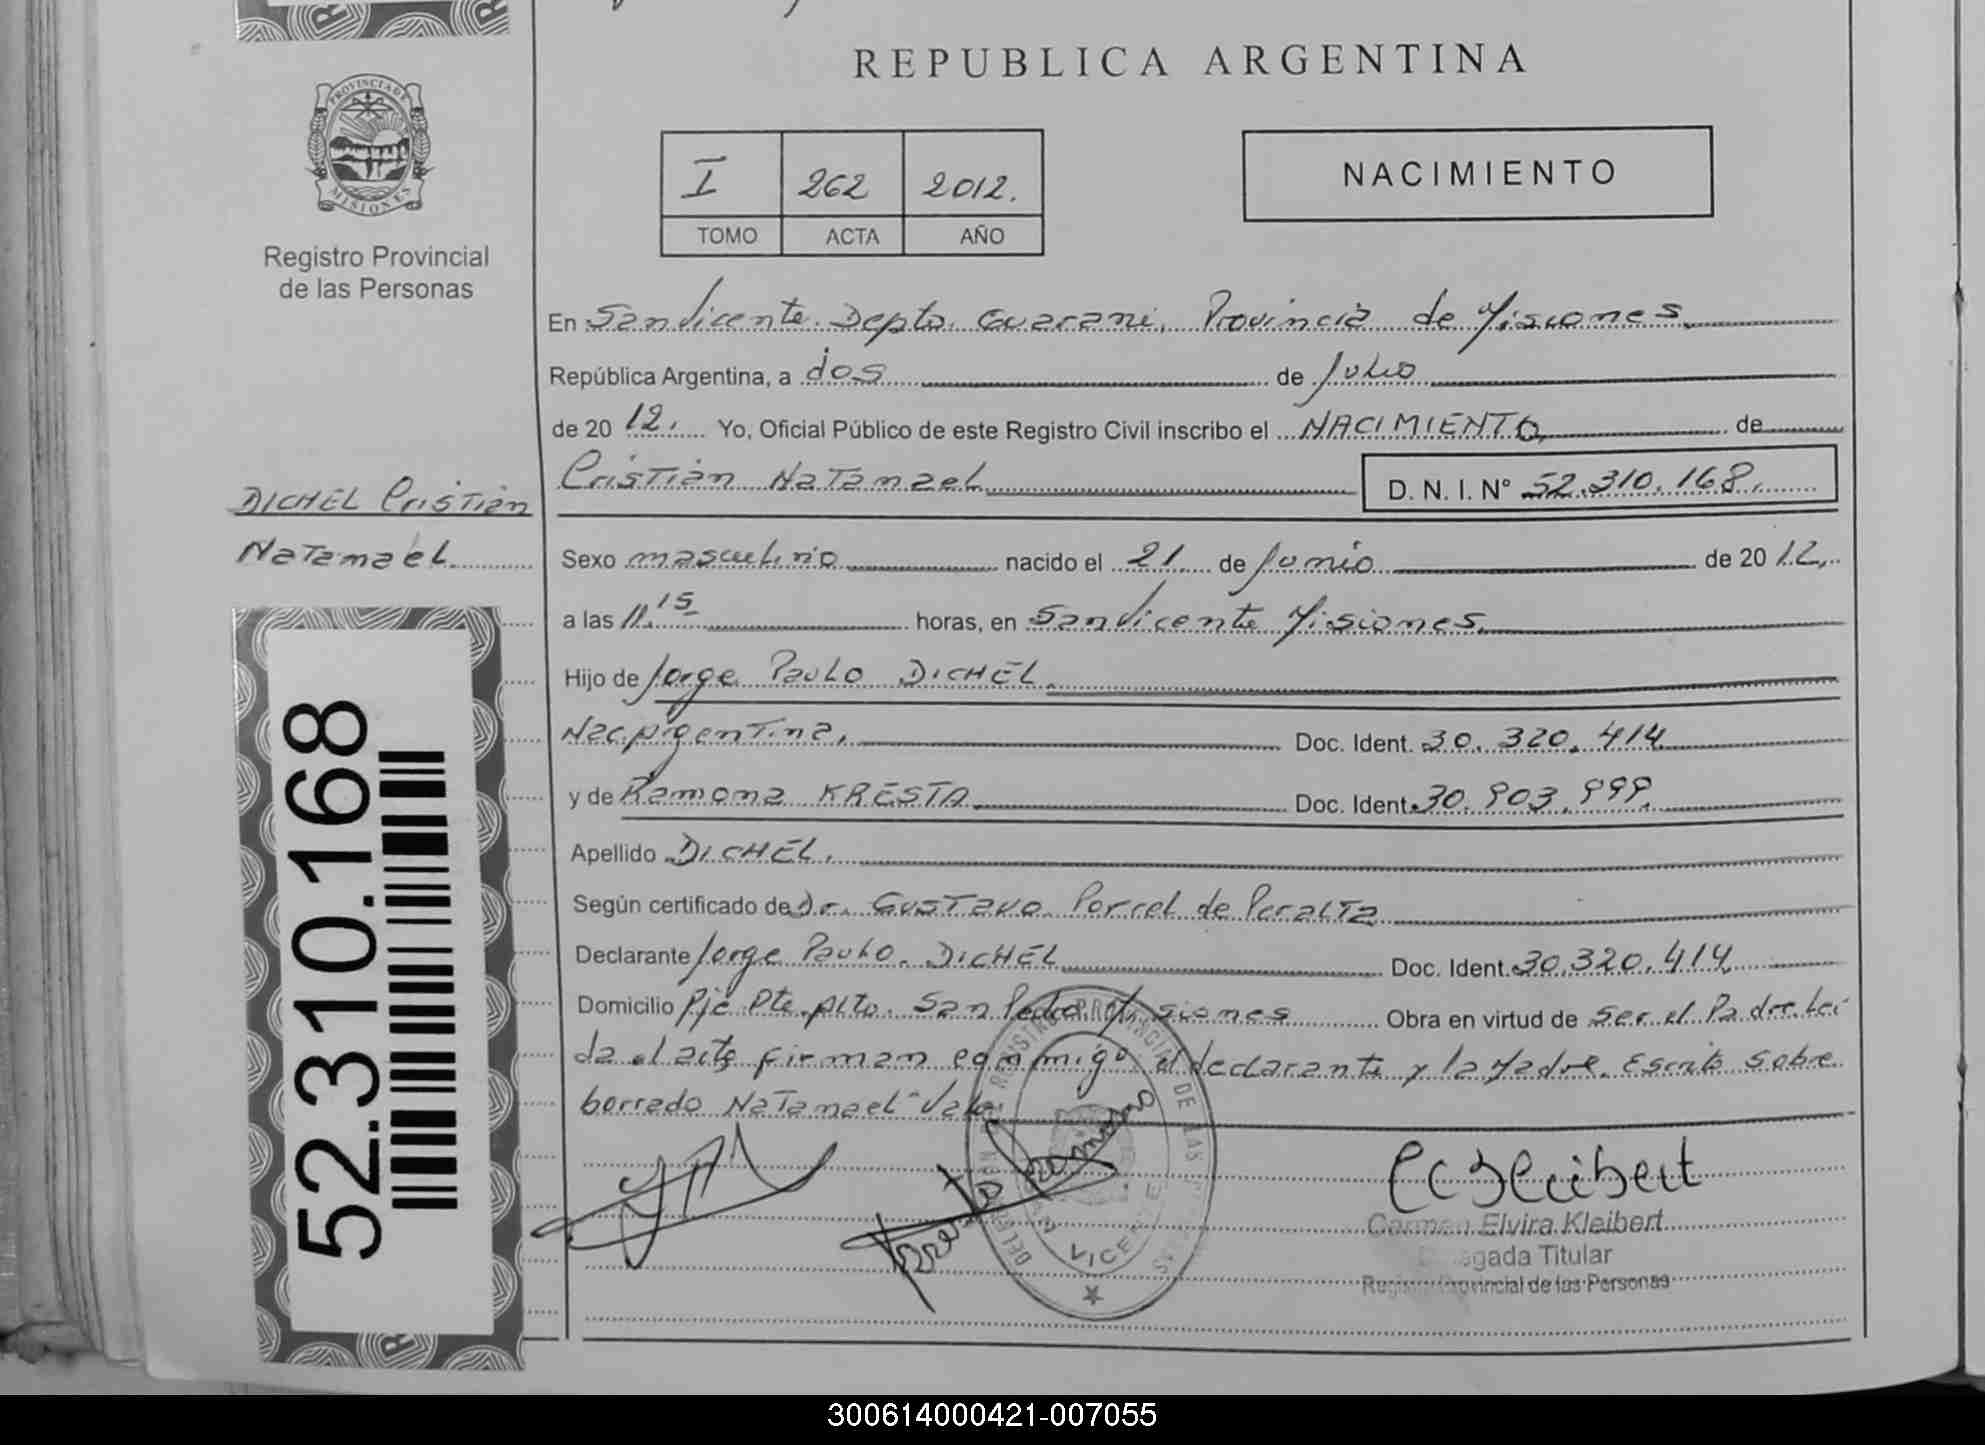 REPUBLICA ARGENTINA
PROVINCIA DE MISIONES
Registro Provincial
de las Personas
I 262 2012.
TOMO ACTA AÑO
NACIMIENTO
En San Vicente Depto. Guarani, Provincia de Misiones
República Argentina, a dos de Julio
de 2012. Yo, Oficial Público de este Registro Civil inscribo el NACIMIENTO de
Cristian Natanael D. N. I. N° 52.310.168.
DICHEL Cristian
Natanael
Sexo masculino nacido el 21 de Junio de 2012,
a las 11.15 horas, en San Vicente Misiones
Hijo de Jorge Paulo DICHEL
Nac. Argentina, Doc. Ident. 30.320.414
y de Ramona KRESTA Doc. Ident. 30.903.999
Apellido DICHEL.
Según certificado de Dr. Gustavo Porcel de Peralta
Declarante Jorge Paulo DICHEL Doc. Ident. 30.320.414
Domicilio Pje Pte. Alto. San Pedro Misiones Obra en virtud de ser el Padre. Lei
da el acta firman conmigo el declarante y la Madre. Escrito sobre
borrado Natanael "Vale
52.310.168
DEL REGISTRO PROVINCIAL DE LAS
SAN VICENTE
Kresta Ramona
Carmen Elvira Kleibert
Delegada Titular
Registro Provincial de las Personas
300614000421-007055